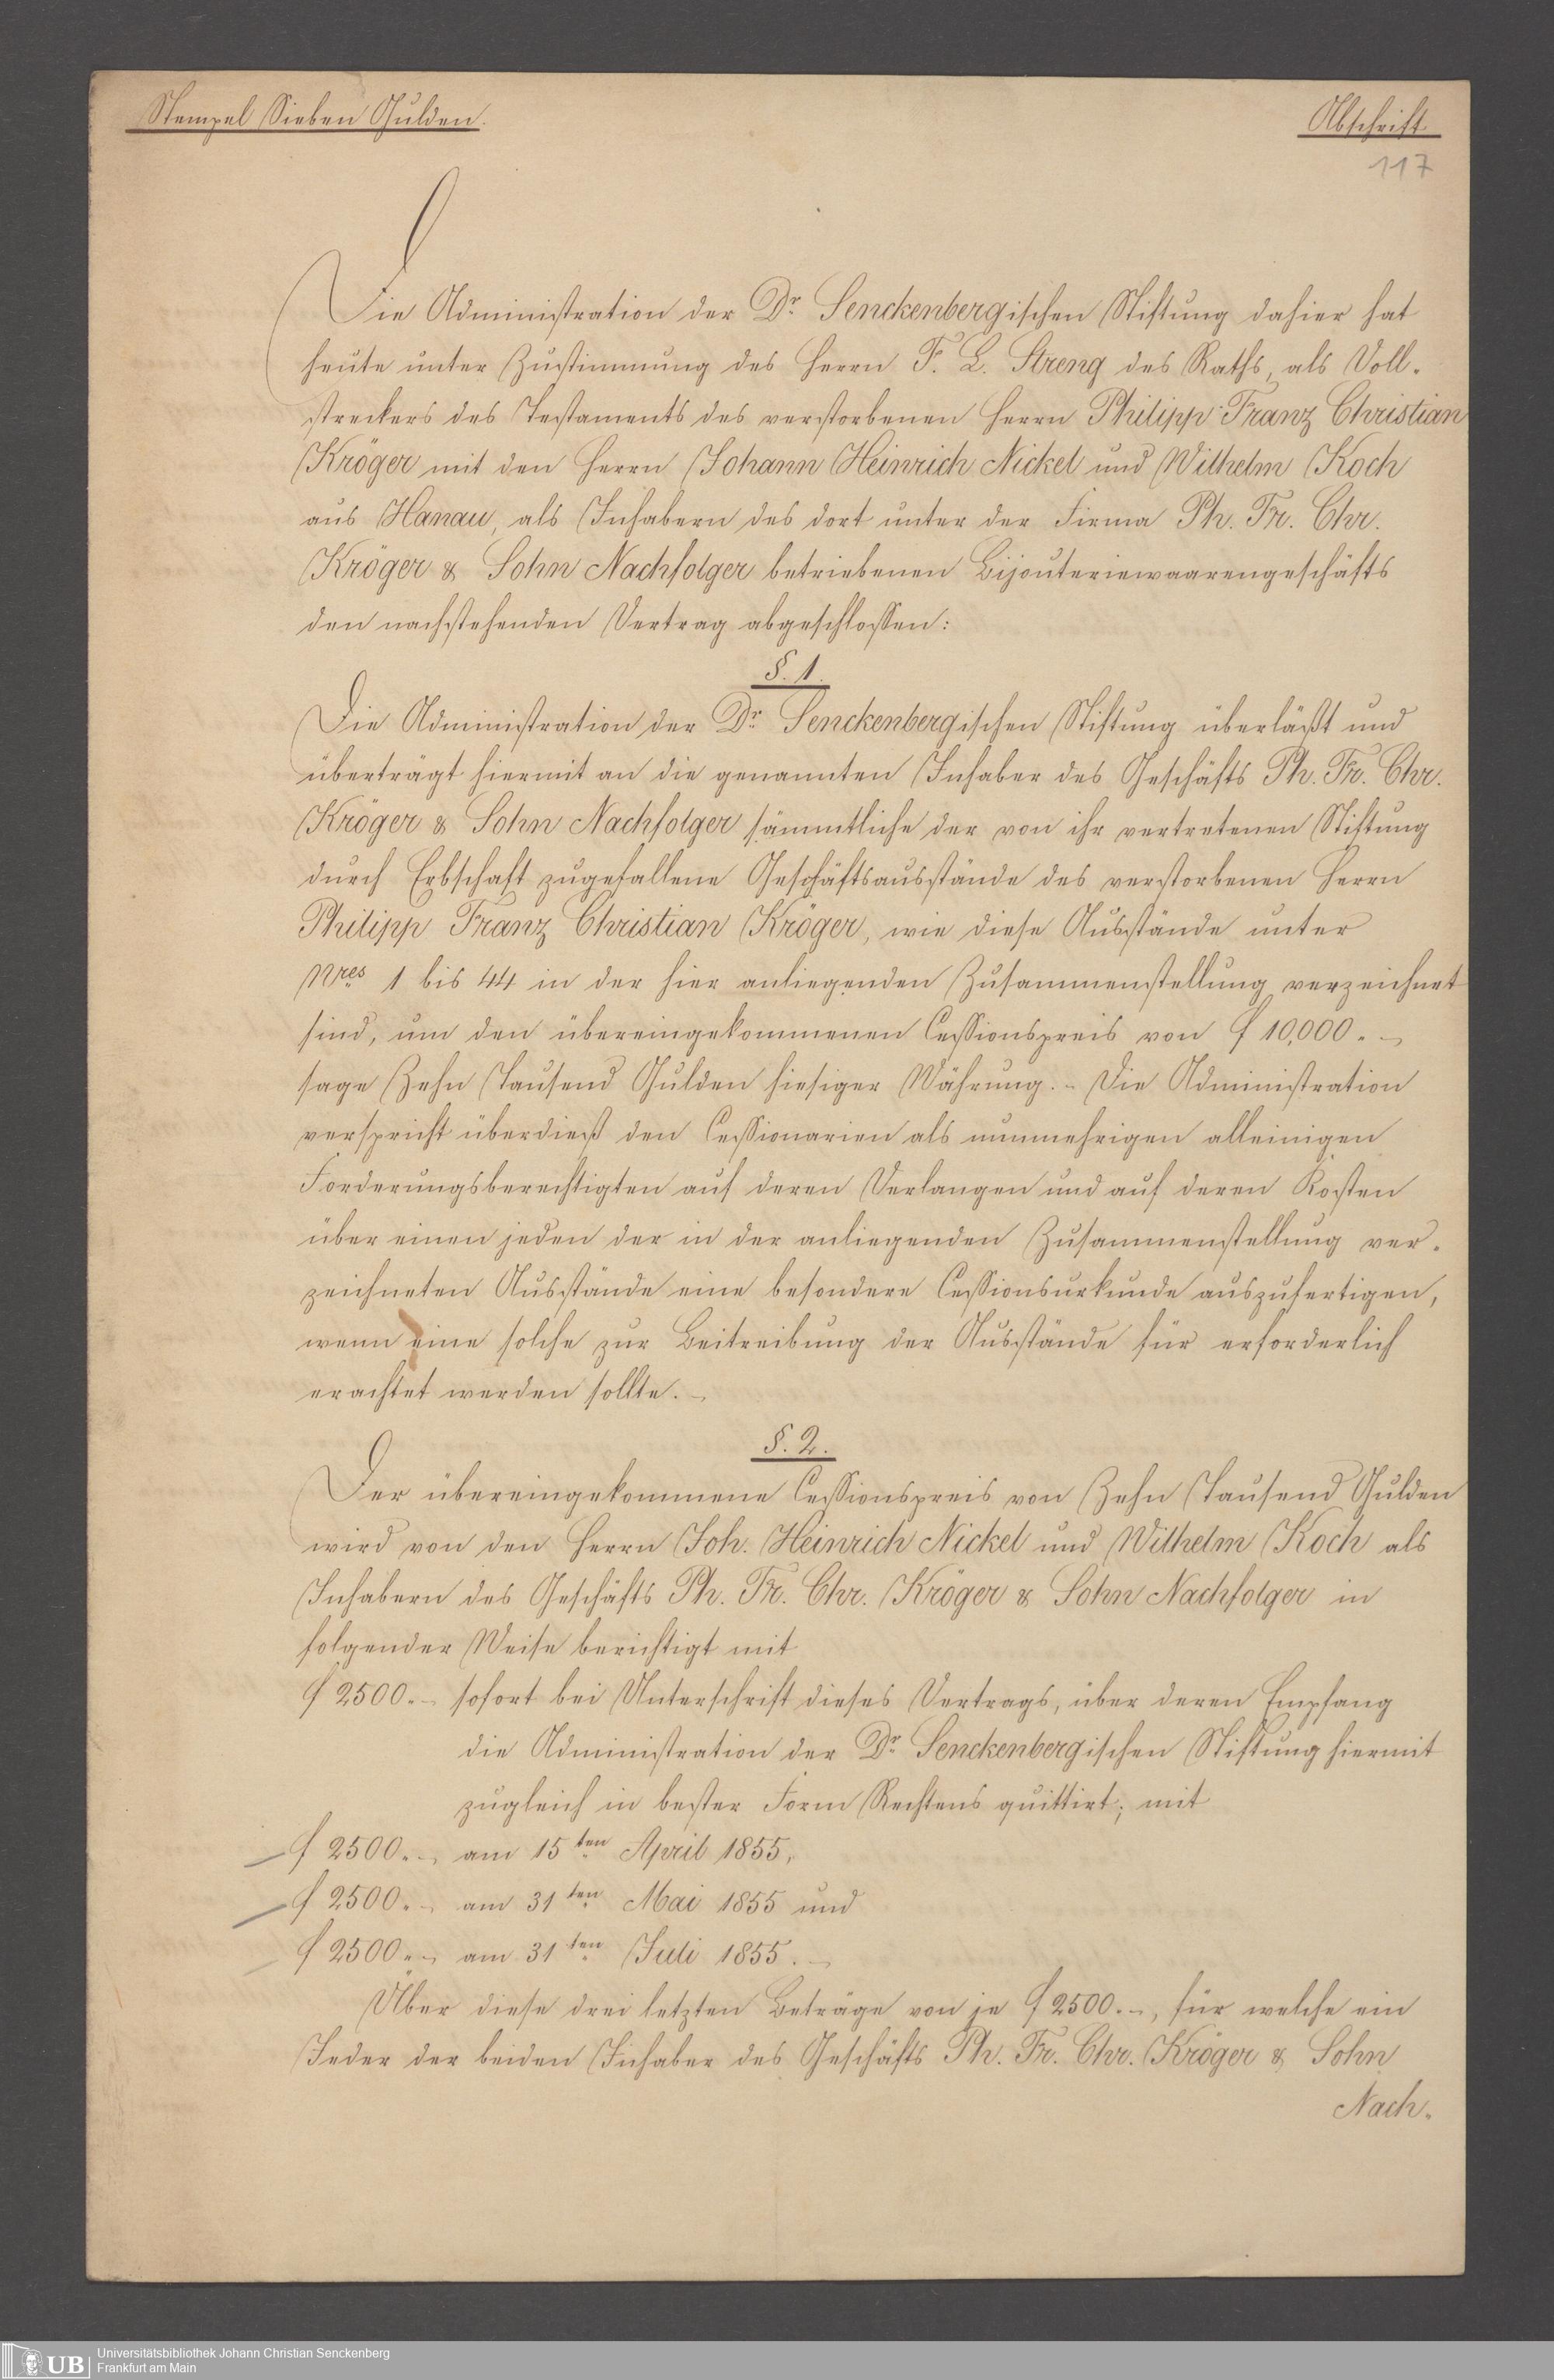 Stempel Sieben Gulden.
Abschrift
117
Die Administration der Dr. Senckenbergischen Stiftung dahier hat
heute unter Zustimmung des Herrn F. L. Streng des Raths, als Voll-
streckers des Testaments des verstorbenen Herrn Philipp Franz Christian
Kröger mit den Herrn Johann Heinrich Nickel und Wilhelm Koch
aus Hanau, als Inhabern des dort unter der Firma Ph. Fr. Chr.
Kröger & Sohn Nachfolger betriebenen Bijouteriewaarengeschäfts
den nachstehenden Vertrag abgeschlossen:
§. 1.
Die Administration der Dr. Senckenbergischen Stiftung überläßt und
überträgt hiermit an die genannten Inhaber des Geschäfts Ph. Fr. Chr.
Kröger & Sohn Nachfolger sämmtliche der von ihr vertretenen Stiftung
durch Erbschaft zugefallene Geschäftsausstände des verstorbenen Herrn
Philipp Franz Christian Kröger, wie diese Ausstände unter
Nres 1 bis 44 in der hier anliegenden Zusammenstellung verzeichnet
sind, um den übereingekommenen Cessionspreis von f 10,000.-
sage Zehn Tausend Gulden hiesiger Währung. - Die Administration
verspricht überdieß den Cessionarien als nunmehrigen alleinigen
Forderungsberechtigten auf deren Verlangen und auf deren Kosten
über einen jeden der in der anliegenden Zusammenstellung ver-
zeichneten Ausstände eine besondere Cessionsurkunde auszufertigen,
wenn eine solche zur Beitreibung der Ausstände für erforderlich
erachtet werden sollte. -
§. 2.
Der übereingekommene Cessionspreis von Zehn Tausend Gulden
wird von den Herrn Joh. Heinrich Nickel und Wilhelm Koch als
Inhabern des Geschäfts Ph. Fr. Chr. Kröger & Sohn Nachfolger in
folgender Weise berichtigt mit
f 2500.- sofort bei Unterschrift dieses Vertrags, über deren Empfang
die Administration der Dr. Senckenbergischen Stiftung hiermit
zugleich in bester Form Rechtens quittirt; mit
f 2500.- am 15ten April 1855,
f 2500.- am 31ten Mai 1855 und
f 2500.- am 31ten Juli 1855. -
Über diese drei letzten Beträge von je f 2500.-, für welche ein
Jeder der beiden Inhaber des Geschäfts Ph. Fr. Chr. Kröger & Sohn
Nach-
UB
Universitätsbibliothek Johann Christian Senckenberg
Frankfurt am Main